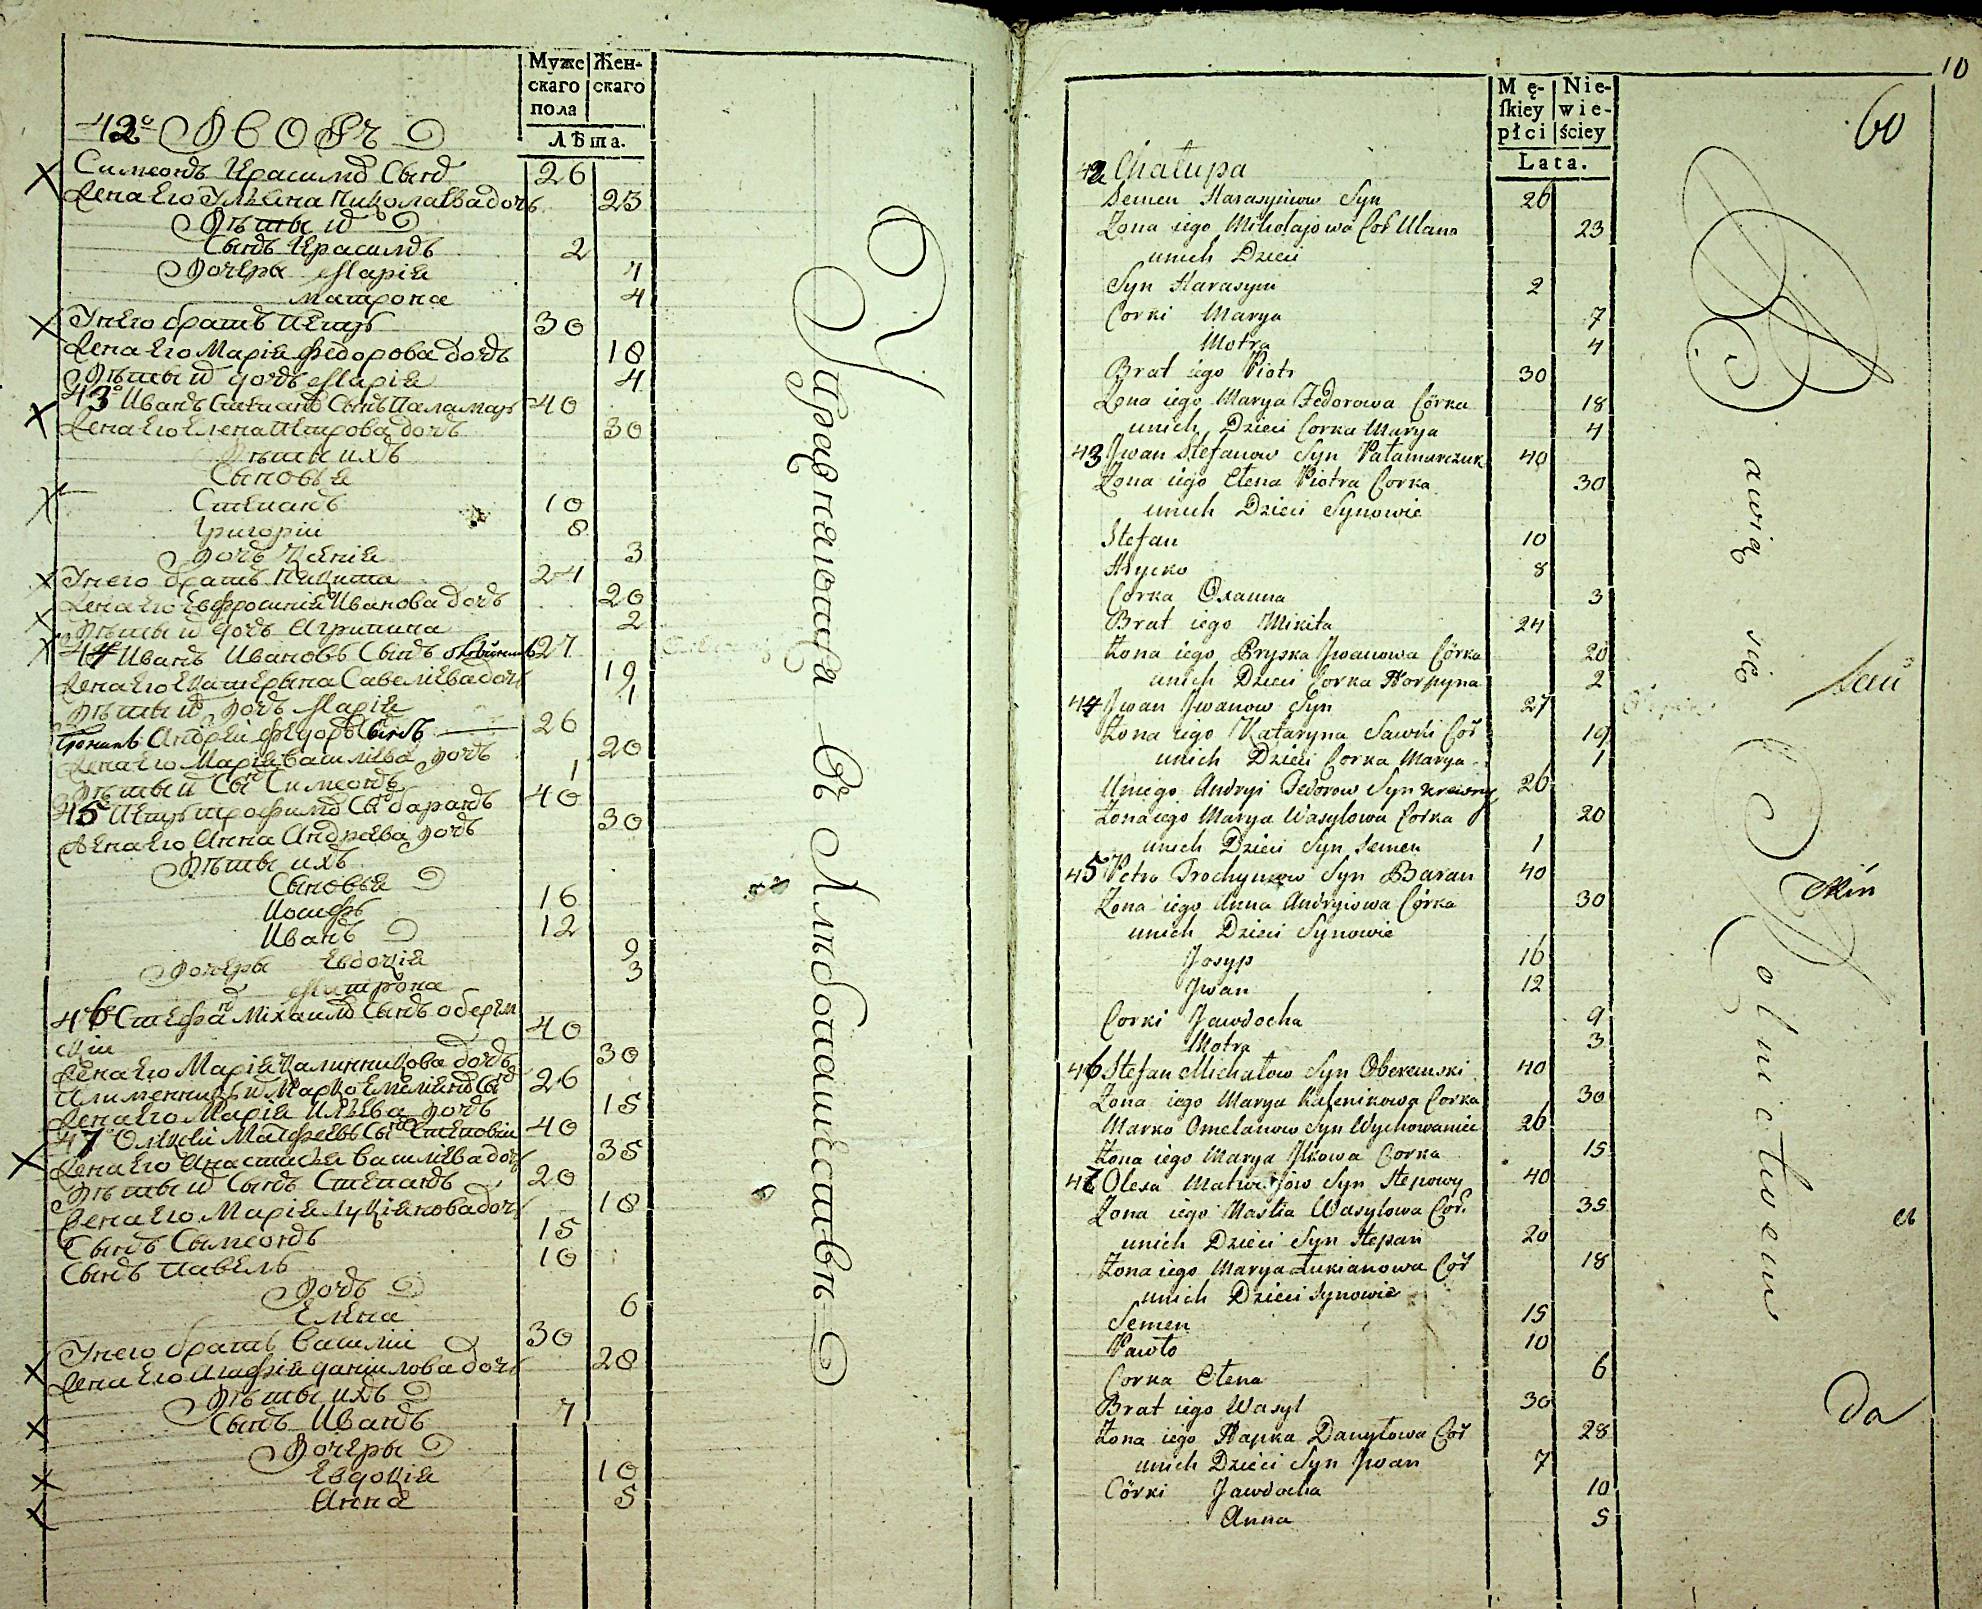 Муже Жен-
скаго скаго
пола
Лѣта.
42º Дворъ
Симеонъ Герасимовъ Сынъ 26
Жена его Ульяна Николаева дочь 23
Дѣты их
Сынъ Герасимъ 2
Дочеры Марія 7
Матрона 4
У него братъ Петръ 30
Жена его Марія Федорова дочь 18
Дѣты их дочь Марія 4
43º Иванъ Степановъ Сынъ Паламар 40
Жена его Елена Петрова дочь 30
Дѣты ихъ
Сыновья
Степанъ 10
Григорій 8
Дочь Ксенія 3
У него братъ Никита 24
Жена его Евфросинія Иванова дочь 20
Дѣты их дочь Агрипина 2
44 Иванъ Ивановъ Сынъ 27
Жена его Екатерына Савелиева дочь 19
Дѣты их дочь Марія 1
Андрей Федоровъ Сынъ 26
Жена его Марія Василіева дочь 20
Дѣты их Сынъ Симеонъ 1
45º Петръ Трофимовъ Сынъ баранъ 40
Жена его Анна Андреева дочь 30
Дѣты ихъ
Сыновья
Иосифъ 16
Иванъ 12
Дочеры Евдокія 9
Матрона 3
46 Стефанъ Міхаиловъ Сынъ оберем 40
скіи
Жена его Марія Калинникова дочь 30
Племенникъ их Марко Емеліановъ Сынъ 26
Жена его Марія Ильева дочь 15
47º Олексѣй Матфѣевъ Сынъ Степовій 40
Жена его Анастасья Василіева дочь 35
Дѣты их Сынъ Степанъ 20
Жена его Марія Лукіянова дочь 18
Сынъ Сымеонъ 15
Сынъ Павелъ 10
Дочь
Елена 6
У него братъ Василій 30
Жена его Агафія данилова дочь 28
Дѣты ихъ
Сынъ Иванъ 7
Дочеры
Евдокія 10
Анна 5
Упражняются Въ Хлѣбопашествѣ
10
60
Mę- Nie-
skiey wie-
płci ściey
Lata.
42 Chałupa
Semen Harasymow Syn 26
Zona iego Mikołajowa Cor Ulana 23
unich Dzieci
Syn Harasym 2
Corki Marya 7
Motra 4
Brat iego Piotr 30
Zona iego Marya Fedorowa Córka 18
unich Dzieci Corka Marya 4
43 Jwan Stefanow Syn Pałamarczuk 40
Zona iego Elena Piotra Corka 30
unich Dzieci Synowie
Stefan 10
Hrycko 8
Corka Oxanna 3
Brat iego Mikita 24
Zona iego Pryska Jwanowa Córka 20
unich Dzieci Corka Horpyna 2
44 Jwan Jwanow Syn 27
Zona iego Kataryna Sawki Cor 19
unich Dzieci Corka Marya 1
Uniego Andryi Fedorow Syn krewny 26
Zona iego Marya Wasylowa Corka 20
unich Dzieci Syn Semen 1
45 Petro Trochymow Syn Baran 40
Zona iego Anna Andryiowa Córka 30
unich Dzieci Synowie
Josyp 16
Jwan 12
Corki Jawdocha 9
Motra 3
46 Stefan Michałow Syn Oberemski 40
Zona iego Marya Kalenikowa Corka 30
Marko Omelanow Syn Wychowaniec 26
Zona iego Marya Jlkowa Corka 15
47 Olexa Matwijow Syn Stepowy 40
Zona iego Nastia Wasylowa Cor. 35
unich Dzieci Syn Stepan 20
Zona iego Marya Łukianowa Cor 18
unich Dzieci Synowie
Semen 15
Pawło 10
Corka Elena 6
Brat iego Wasyl 30
Zona iego Hapka Danyłowa Cor 28
unich Dzieci Syn Jwan 7
Córki Jawdocha 10
Anna 5
Bawią się Rolnictwem